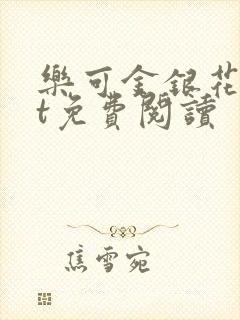 樂可金銀花
t免費閱讀
焦雪宛